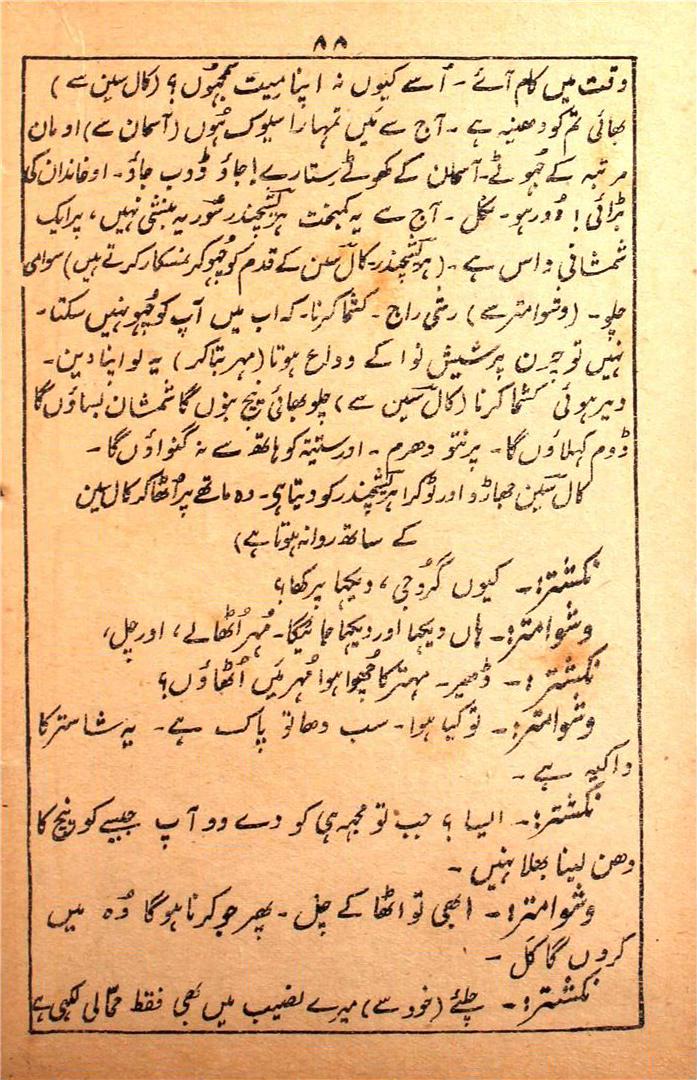 ۸۸
وقت میں کام آئے ۔ اُسے کیوں نہ اپنا میت سمجہوں ؟ (کال سین سے )
بھائی تم کو دھنیہ ہے ۔ آج سے میں تمہارا سیوک ہُوں (آسمان سے) او مان
مرتبہ کے جُھوٹے ۔ آسمان کے کھوٹے ستارے ! جاؤ ڈوب جاؤ ۔ او خاندان کی
بڑائی ! دُور ہو ۔ نکل ۔ آج سے یہ کمبخت ہرِیشچندر سُوریہ بنشی نہیں ، پر ایک
شمشانی داس ہے ۔ (ہرِیشچندر کال سین کے قدم کو چُھو کر نمسکار کرتے ہیں) سوامی
چلو ۔ (وشوامتر سے ) رشی راج ۔ کشما کرنا ۔ کہ اب میں آپ کو چُھو نہیں سکتا ۔
نہیں تو چرن پر شیش نوا کے وداع ہوتا (مہر بتا کر ) یہ لو اپنا دین ۔
دیر ہوئی کشما کرنا (کال سین سے ) چلو بھائی نیچ بنوں گا شمشان بساؤں گا
ڈوم کہلاؤں گا ۔ پرنتو دھرم ۔ اور ستیہ کو ہاتھ سے نہ گنواؤں گا ۔
کال سین جھاڑو اور ٹوکرا ہرِیشچندر کو دیتا ہی ۔ وہ ماتھے پر اُٹھا کر کال سین
کے ساتھ روانہ ہوتا ہے )
نکشتر :۔ کیوں گروجی ، دیکہا پرکھا ؟
وشوامتر :۔ ہاں دیکہا اور دیکہا جائیگا ۔ مُہر اُٹھالے ، اور چل ،
نکشتر :۔ ڈھیر ۔ مہتر کا چُھوا ہوا مُہر مَیں اُٹھاؤں ؟
وشوامتر :۔ تو کیا ہوا ۔ سب دھاتو پاک ہے ۔ یہ شاستر کا
واکیہ ہے ۔
نکشتر :۔ ایسا ؟ جب تو مجہہ ہی کو دے دو آپ جیسے کو نیچ کا
دھن لینا بھلا نہیں ۔
وشوامتر :۔ ابھی تو اٹھا کے چل ۔ پھر جو کرنا ہوگا وُہ میں
کروں گا کل ۔
نکشتر :۔ چلئے (خود سے ) میرے نصیب میں بھی فقط حمّالی لکہی ہے